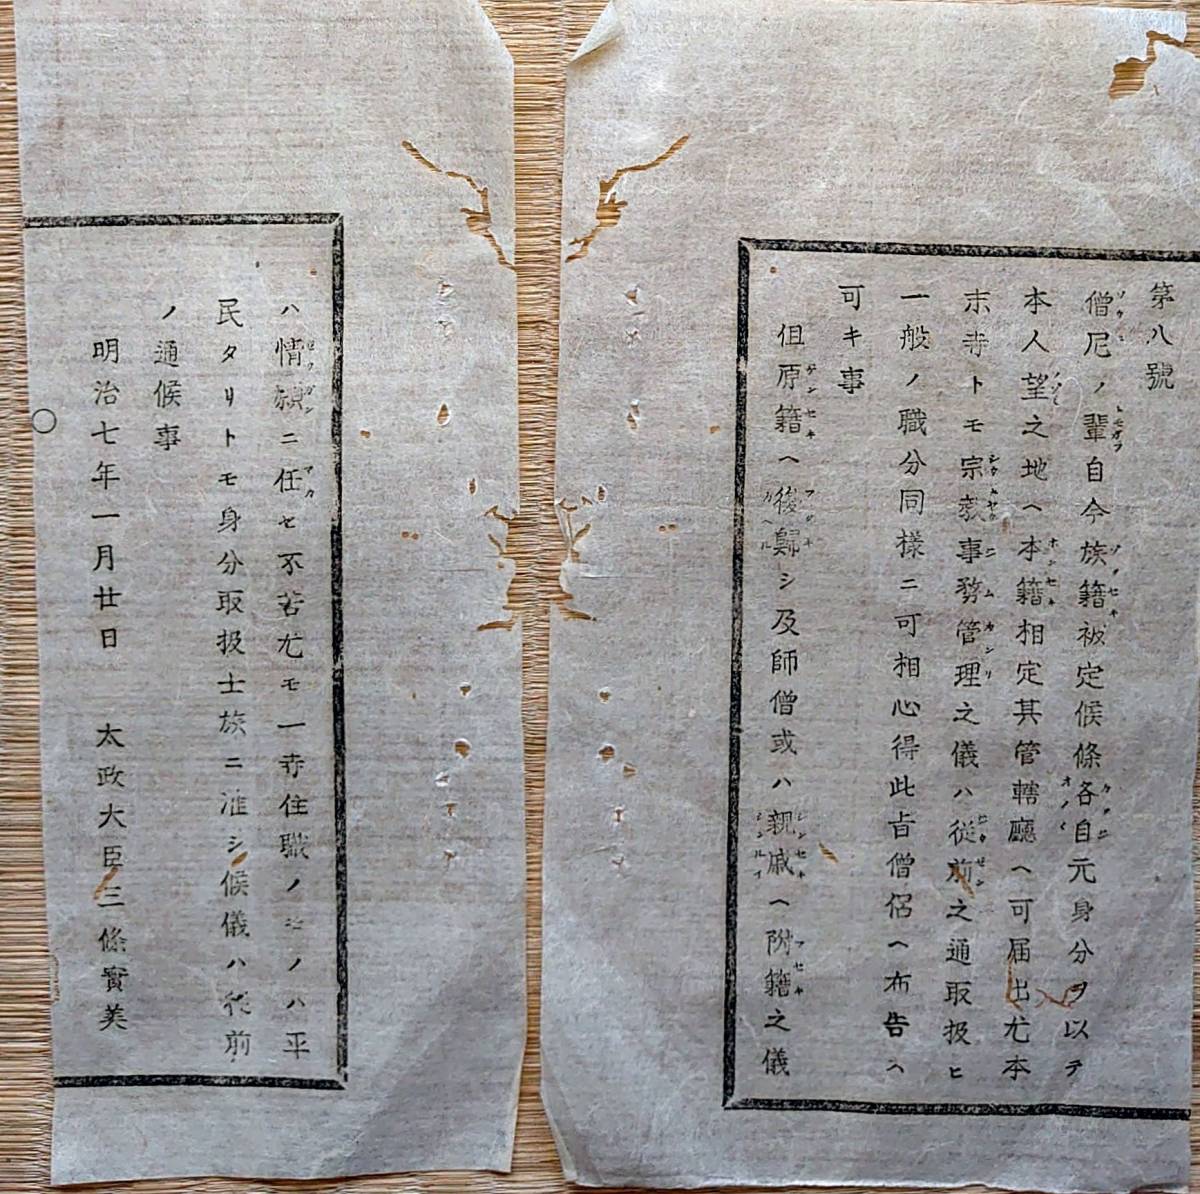 第八號
僧尼ノ輩自今族籍被定候條各自元身分ヲ以テ
本人望之地ヘ本籍相定其管轄廳ヘ可届出尤本
末寺トモ宗教事務管理之儀ハ従前之通取扱ヒ
一般ノ職分同様ニ可相心得此旨僧侶ヘ布告ス
可キ事
但原籍ヘ復歸シ及師僧或ハ親戚ヘ附籍之儀
ハ情願ニ任セ不苦尤モ一寺住職ノモノハ平
民タリトモ身分取扱士族ニ准シ候儀ハ従前
ノ通候事
明治七年一月廿日 太政大臣三條實美